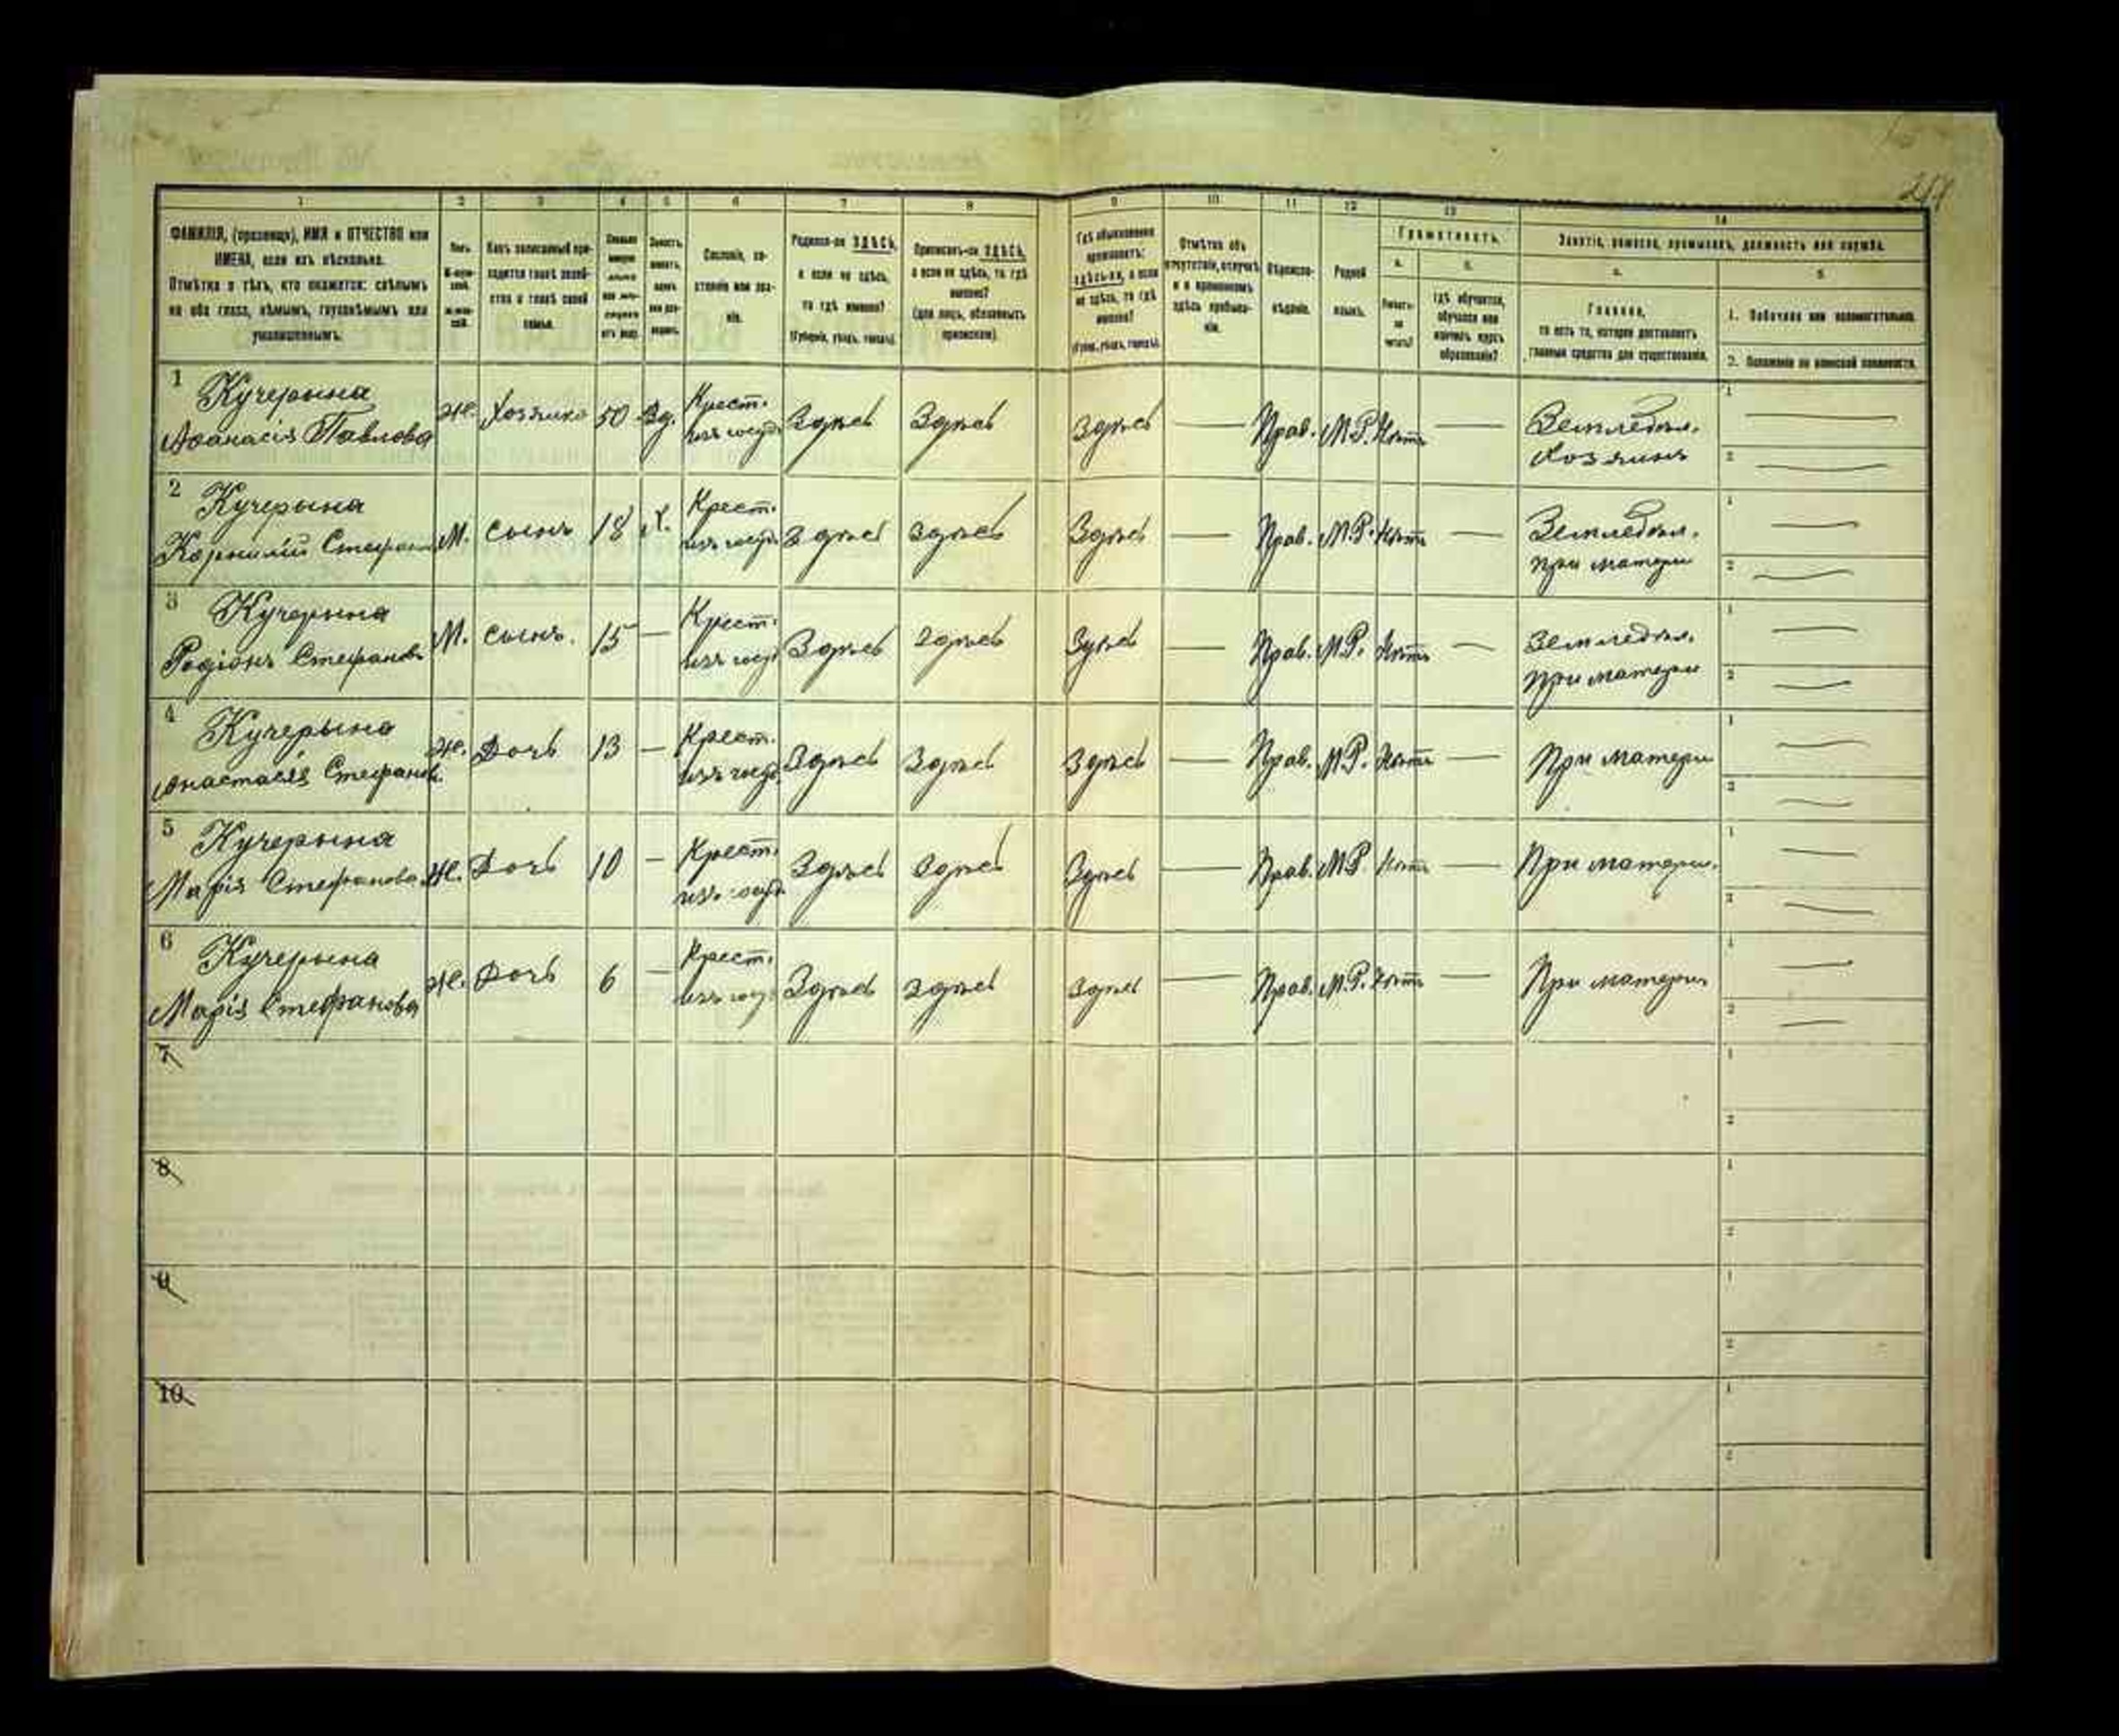 1 2 3 4 5 6 7 8 9 10 11 12 13 14
ФАМИЛІЯ, (прозвище), ИМЯ и ОТЧЕСТВО или
ИМЕНА, если ихъ нѣсколько.
Отмѣтка о тѣхъ, кто окажется: слѣпымъ
на оба глаза, нѣмымъ, глухонѣмымъ или
умалишеннымъ.
Полъ.
Какъ записанный при-
ходится главѣ хозяй-
ства и главѣ своей
семьи.
Сословіе, со-
стояніе или зва-
ніе.
Родился-ли ЗДѢСЬ,
а если не здѣсь,
то гдѣ именно?
(Губернія, уѣздъ, городъ).
Приписанъ-ли ЗДѢСЬ,
а если не здѣсь, то гдѣ
именно?
(для лицъ, обязанныхъ
припискою).
Гдѣ обыкновенно
проживаетъ:
здѣсь-ли, а если
не здѣсь, то гдѣ
именно?
(Губ., уѣздъ, городъ).
Отмѣтка объ
отсутствіи, отлучкѣ
и о временномъ
здѣсь пребыва-
ніи.
Вѣроиспо-
вѣданіе.
Родной
языкъ.
Грамотность.
а.
Умѣетъ-
ли
читать?
б.
гдѣ обучается,
обучался или
кончилъ курсъ
образованія?
Занятіе, ремесло, промыселъ, должность или служба.
а.
Главное,
то есть то, которое доставляетъ
главныя средства для существованія.
б.
1. Побочное или вспомогательное.
2. Положеніе по воинской повинности.
1 Кучерына
Аѳанасія Павлова
Ж. Хозяйка 50 Вд. Крест.
изъ госуд. Здѣсь Здѣсь Здѣсь — Прав. М.Р. Нѣтъ — Земледѣл.
Хозяинъ
1 —
2 —
2 Кучерына
Корнилій Стефан
М. сынъ 18 Х. Крест.
изъ госуд. Здѣсь Здѣсь Здѣсь — Прав. М.Р. Нѣтъ — Земледѣл.
при матери
1 —
2 —
3 Кучерына
Родіонъ Стефанов
М. сынъ. 15 — Крест.
изъ госуд. Здѣсь Здѣсь Здѣсь — Прав. М.Р. Нѣтъ — Земледѣл.
при матери
1 —
2 —
4 Кучерына
Анастасія Стефанов.
Ж. Дочь 13 — Крест.
изъ госуд. Здѣсь Здѣсь Здѣсь — Прав. М.Р. Нѣтъ — При матери
1 —
2 —
5 Кучерына
Марія Стефанова
Ж. Дочь 10 — Крест.
изъ госуд. Здѣсь Здѣсь Здѣсь — Прав. М.Р. Нѣтъ — При матери.
1 —
2 —
6 Кучерына
Марія Стефанова
Ж. Дочь 6 — Крест.
изъ госуд. Здѣсь Здѣсь Здѣсь — Прав. М.Р. Нѣтъ — При матери
1 —
2 —
7
1
2
8
1
2
9
1
2
10
1
2